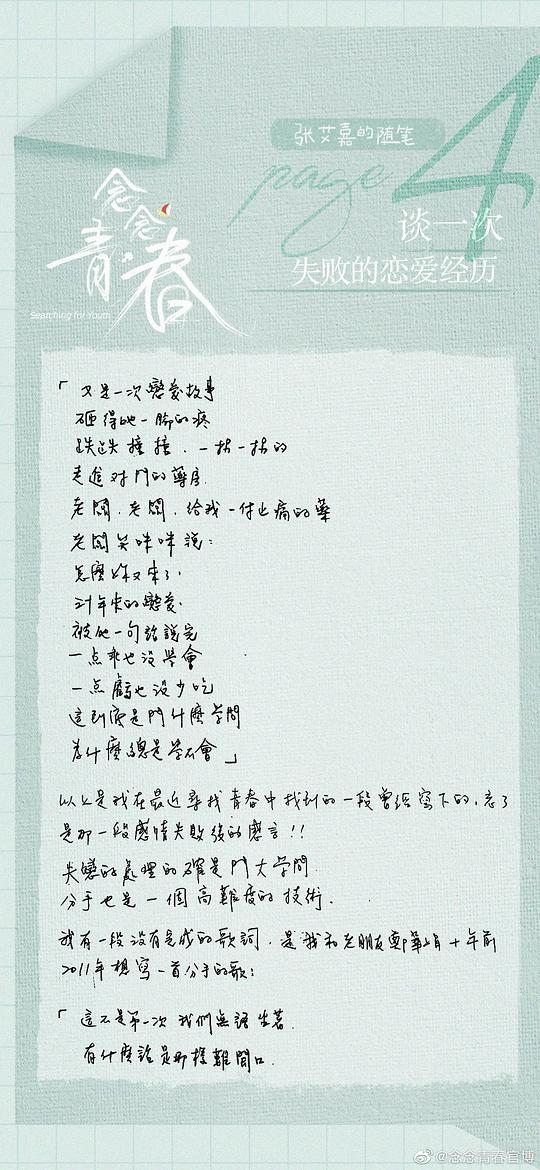 张艾嘉的随笔
page 4
谈一次
失败的恋爱经历
念念青春
Searching for Youth
「又是一次戀愛故事
砸得她一腳的疼
跌跌撞撞．一拐一拐的
走進對門的藥房．
老闆．老闆．給我一付止痛的藥
老闆笑咪咪說：
怎麼妳又來了．
年來的戀愛．
被他一句話說完
一点乖也沒學會
一点虧也沒少吃
這到底是門什麼學問
為什麼總是學不會」
以上是我在最近尋找青春中找到的一段曾經寫下的．忘了
是那一段感情失敗後的感言！！
失戀的處理的確是門大學問．
分手也是一個高難度的技術．
我有一段沒有完成的歌詞．是我和老朋友鄭華娟十年前
2011年想寫一首分手的歌：
「這不是第一次 我們無語坐著．
有什麼話是那樣難開口．
@念念青春官博